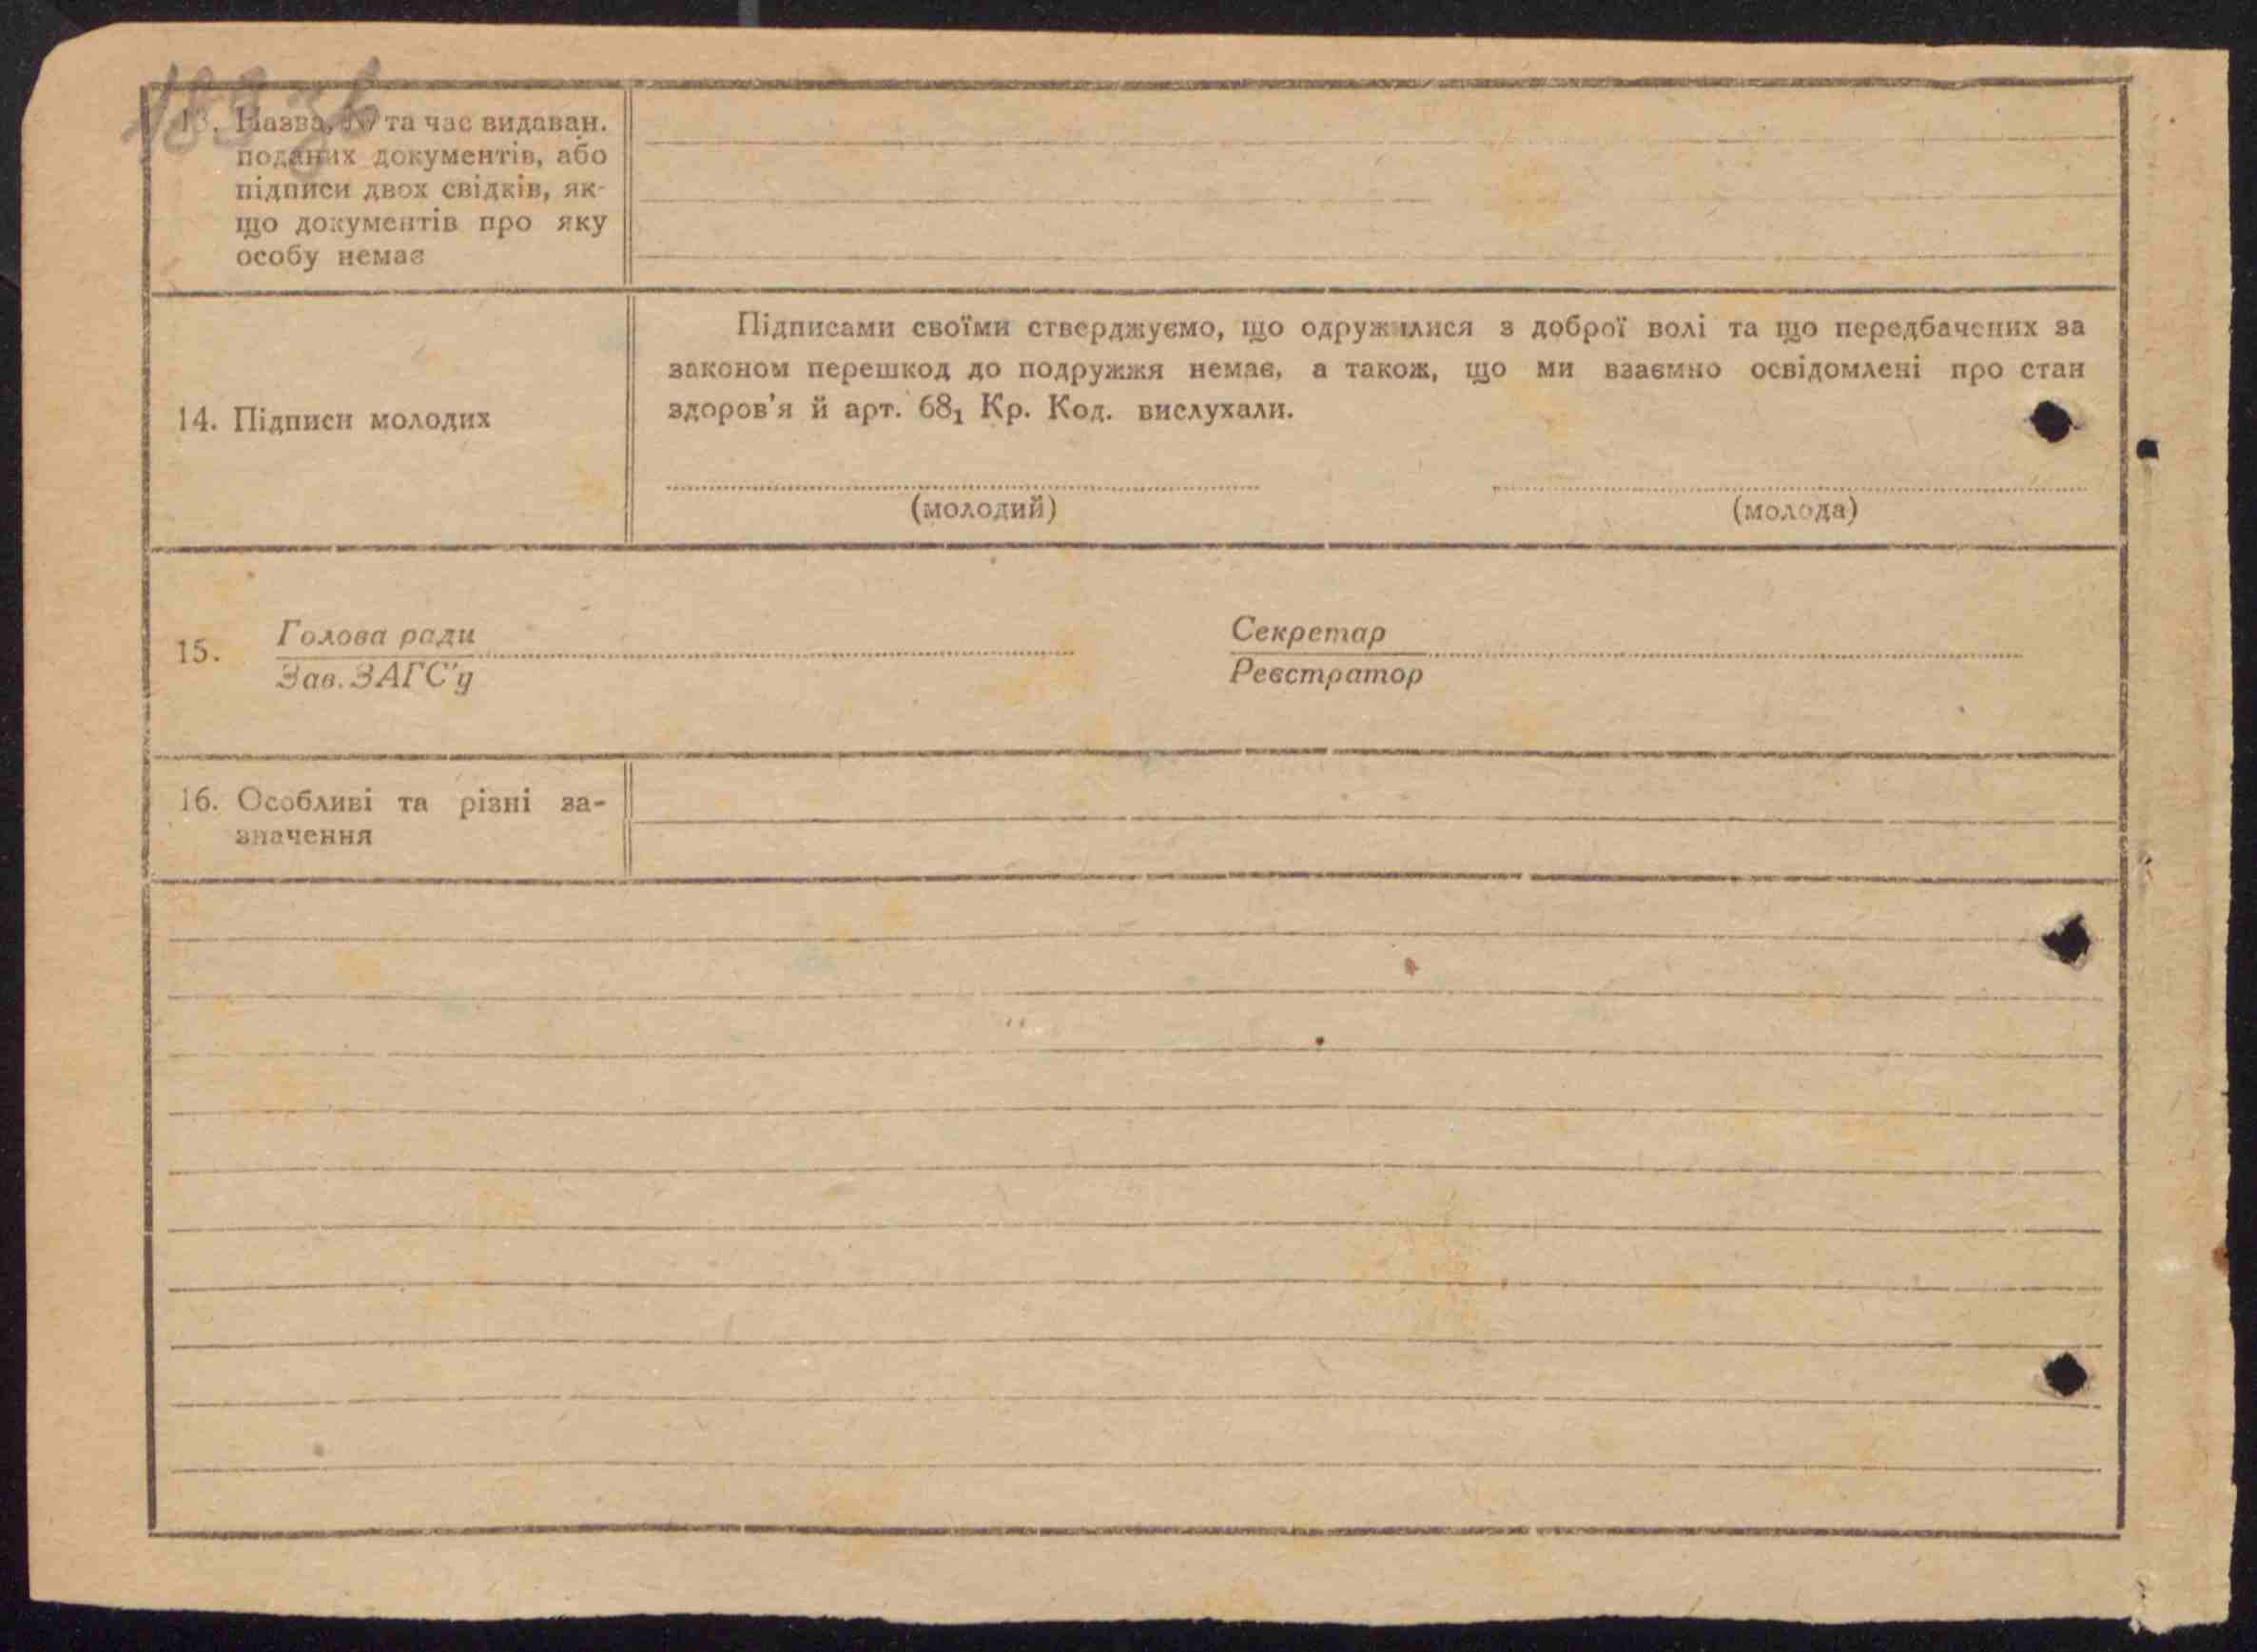 13. Назва, № та час видаван.
поданих документів, або
підписи двох свідків, як-
що документів про яку
особу немає
14. Підписи молодих
Підписами своїми стверджуємо, що одружилися з доброї волі та що передбачених за
законом перешкод до подружжя немає, а також, що ми взаємно освідомлені про стан
здоров'я й арт. 68₁ Кр. Код. вислухали.
(молодий) (молода)
15. Голова ради
Зав. ЗАГС'у
Секретар
Реєстратор
16. Особливі та різні за-
значення